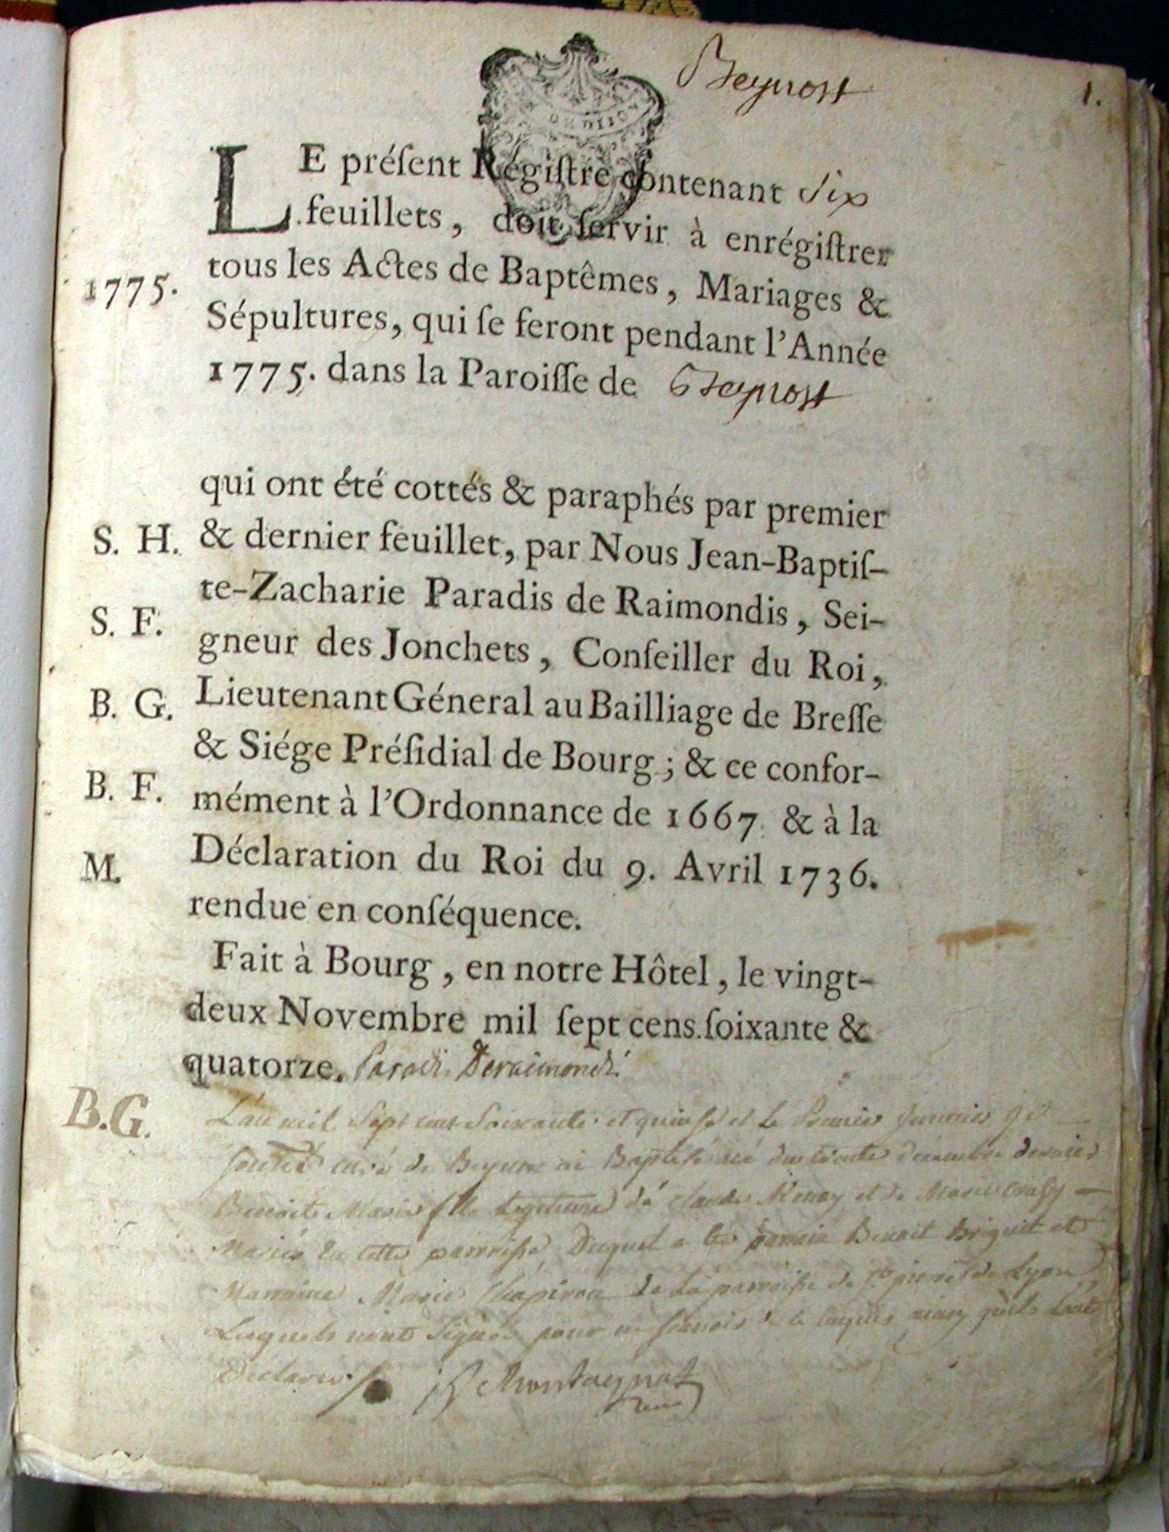 Beynost
1.
LE préſent Régiſtre contenant Six
feuillets, doit ſervir à enrégiſtrer
tous les Actes de Baptêmes, Mariages &
1775.
Sépultures, qui ſe feront pendant l'Année
1775. dans la Paroiſſe de Beynost
qui ont été cottés & paraphés par premier
S. H. & dernier feuillet, par Nous Jean-Baptiſ-
te-Zacharie Paradis de Raimondis, Sei-
S. F. gneur des Jonchets, Conſeiller du Roi,
B. G. Lieutenant Géneral au Bailliage de Breſſe
& Siége Préſidial de Bourg; & ce confor-
B. F. mément à l'Ordonnance de 1667 & à la
M. Déclaration du Roi du 9. Avril 1736.
rendue en conſéquence.
Fait à Bourg, en notre Hôtel, le vingt-
deux Novembre mil ſept cens.ſoixante &
quatorze. Paradis Deraimondis
B.G. L'an mil Sept cent Soixante et quinse et le Premier Janvier
curé de Beynost ai Baptisé né du trente décembre dernier
Benoite Marie fille Legitime de Claude et de Marie
Mariés En cette parroisse, Duquel a été parrain Benoit Briguet et
Marraine Marie de La parroisse de St pierre de Lyon
Lesquels n'ont Signé pour ne Scavoir de ce enquis ainsy qu'ils L'ont
Déclaré. Montagnat